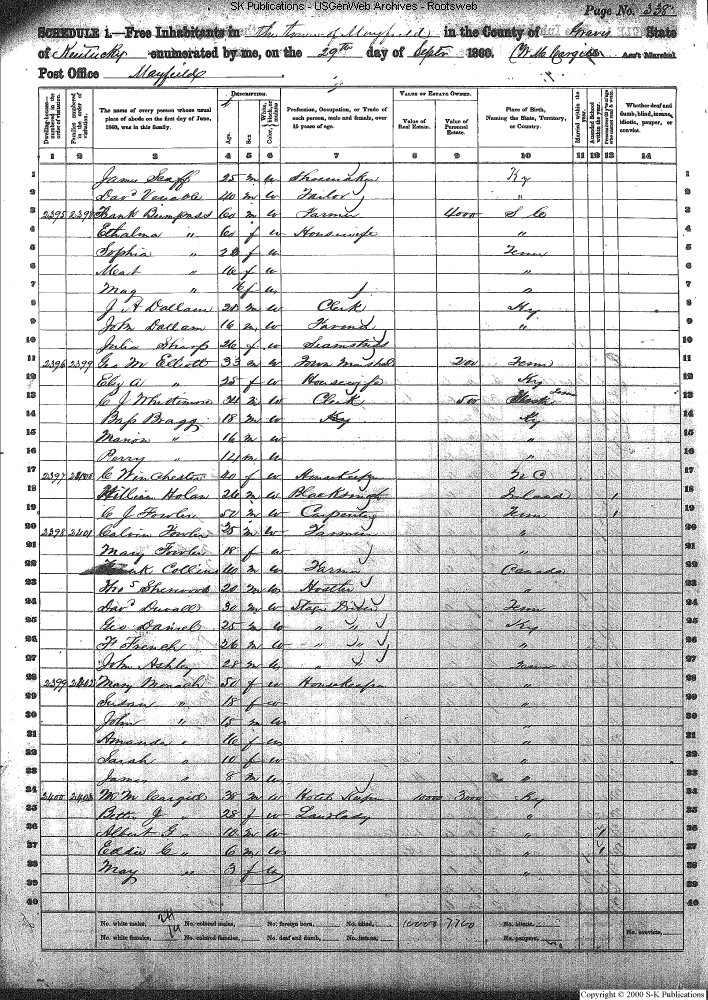 SK Publications - USGenWeb Archives - Rootsweb
Page No. 338
SCHEDULE 1.—Free Inhabitants in the Town of Mayfield in the County of Graves State
of Kentucky enumerated by me, on the 29th day of Septr 1860. Wm McCargill Ass't Marshal
Post Office Mayfield
Dwelling-houses numbered in the order of visitation. Families numbered in the order of visitation. The name of every person whose usual place of abode on the first day of June, 1860, was in this family. DESCRIPTION. Age. Sex. Color, White, black, or mulatto. Profession, Occupation, or Trade of each person, male and female, over 15 years of age. VALUE OF ESTATE OWNED. Value of Real Estate. Value of Personal Estate. Place of Birth, Naming the State, Territory, or Country. Married within the year. Attended School within the year. Whether deaf and dumb, blind, insane, idiotic, pauper, or convict.
1 2 3 4 5 6 7 8 9 10 11 12 13 14
1 James 25 m w Shoemaker Ky 1
2 Davd Venable 40 m w Tailor " 2
3 2395 2398 Frank Bumpass 60 m w Farmer 4000 S C 3
4 Ethalma " 60 f w Housewife " 4
5 Sophia " f w Tenn 5
6 " 16 f w " 6
7 Mag " f w " 7
8 J A Dallam m w Clerk Ky 8
9 John Dallam 16 m w " 9
10 Julia Sharp 26 f w Seamstress " 10
11 2396 2399 Geo M Elliott 33 m w Town Marshal 200 Tenn 11
12 Eliz A " 25 f w Housewife Ky 12
13 C J Whittemore 24 m w Clerk 500 Tenn 13
14 Bragg 18 m w Ky Ky 14
15 Marion " 16 m w " 15
16 Perry " 14 m w " 16
17 2397 2400 C Winchester 40 f w Housekeeper N C 17
18 William Holan 26 m w Blacksmith 1 18
19 C J Fowler 50 m w Carpenter Tenn 1 19
20 2398 2401 Calvin Fowler 25 m w Farmer " 20
21 Mary Fowler 18 f w " 21
22 Collins 40 m w Farmer Canada 22
23 Thos Sherwood 20 m w Hostler " 23
24 Davd Duvall 30 m w Stage Driver Tenn 24
25 Geo Daniel 25 m w " " Ky 25
26 F French 26 m w " " " 26
27 John Ashley 28 m w " 27
28 2399 2402 Mary 50 f w Housekeeper " 28
29 Susan " 18 f w " 29
30 John " 15 m w " 30
31 Amanda " 16 f w " 31
32 Sarah " 10 f w " 32
33 James " 8 m w " 33
34 2400 2403 Wm McCargill 38 m w Hotel Keeper 10000 3000 Ky 34
35 J " 28 f w Landlady " 35
36 Albert G " 10 m w " 1 36
37 Eddie C " 6 m w " 1 37
38 May " 3 f w " 38
39 39
40 40
No. white males, 24 No. colored males, No. foreign born, No. blind, 10000 7700 No. idiotic,
No. white females, 14 No. colored females, No. deaf and dumb, No. insane, No. paupers, No. convicts,
Copyright © 2000 S-K Publications